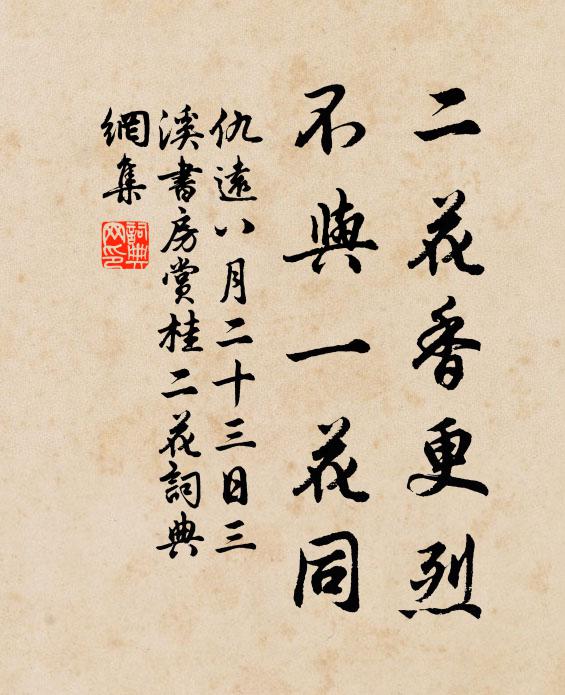 二花香更烈
不與一花同
仇遠八月二十三日三
溪書房賞桂二花詞典
網集
詞典
网印